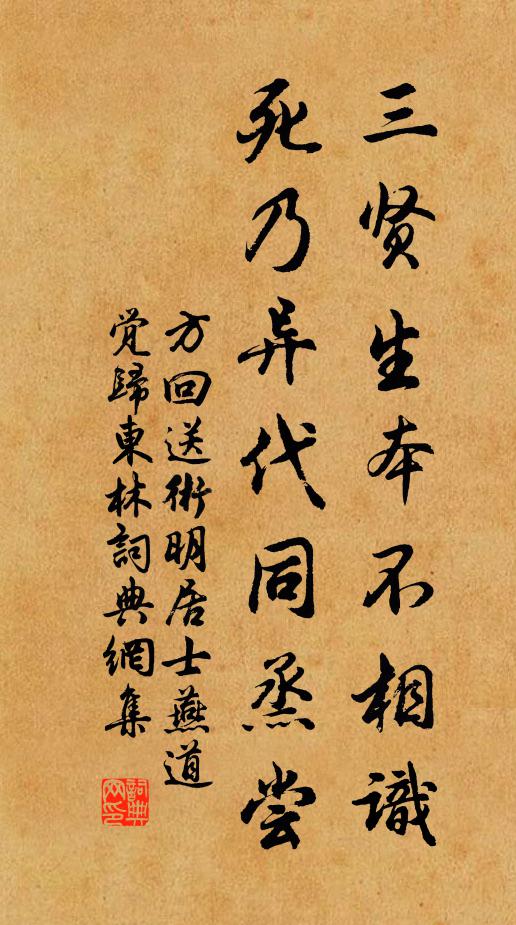 三贤生本不相識
死乃异代同烝尝
方回送術明居士燕道
觉歸東林詞典網集
詞典网印